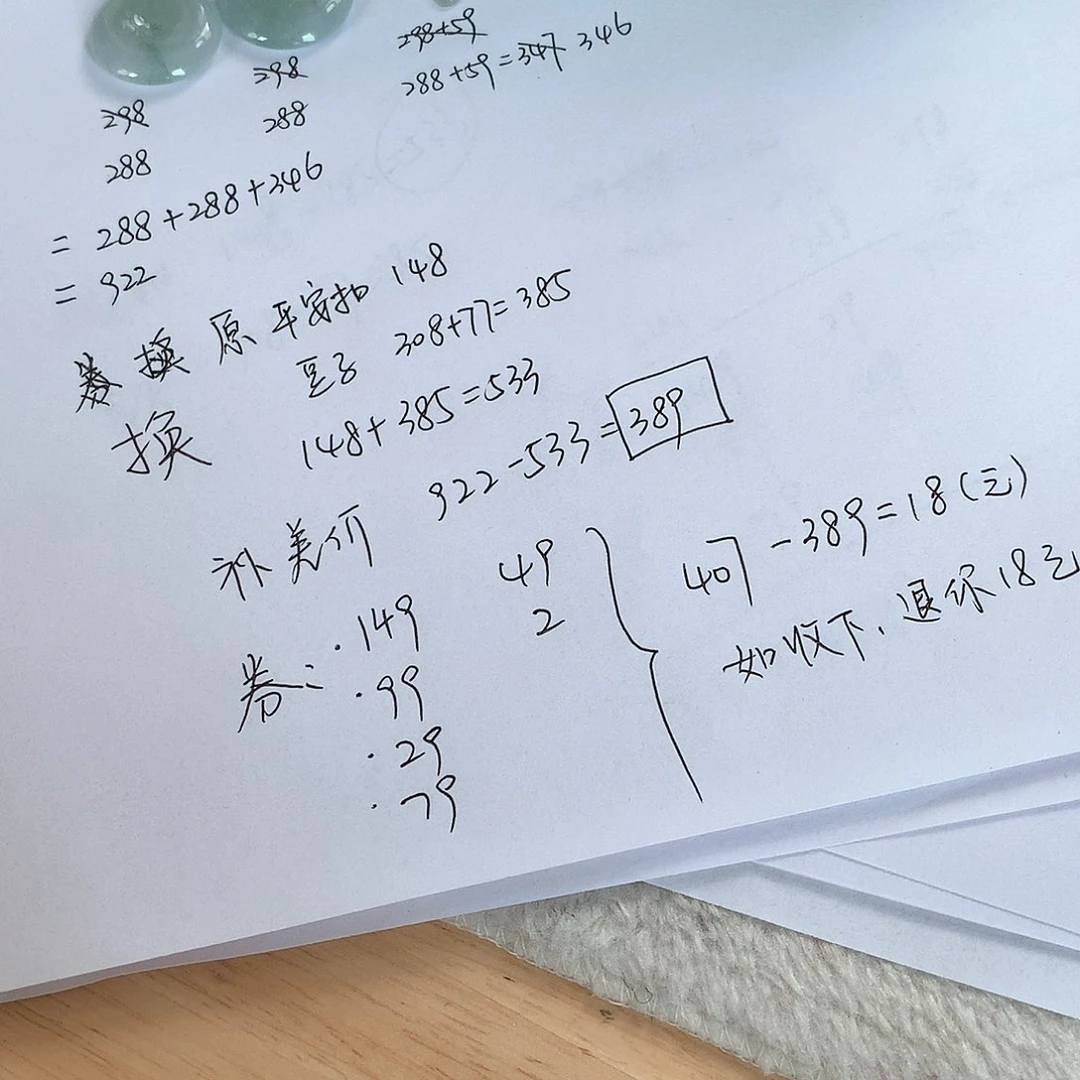 298+59
298
288+59=347 346
298
288
288
= 288+288+346
= 922
券 换 原 平安扣 148
豆子 308+77=385
换 148+385=533
补差价 922-533=389
49
407-389=18(元)
2
券: ·149
如收下,退你18元
·99
·29
·79